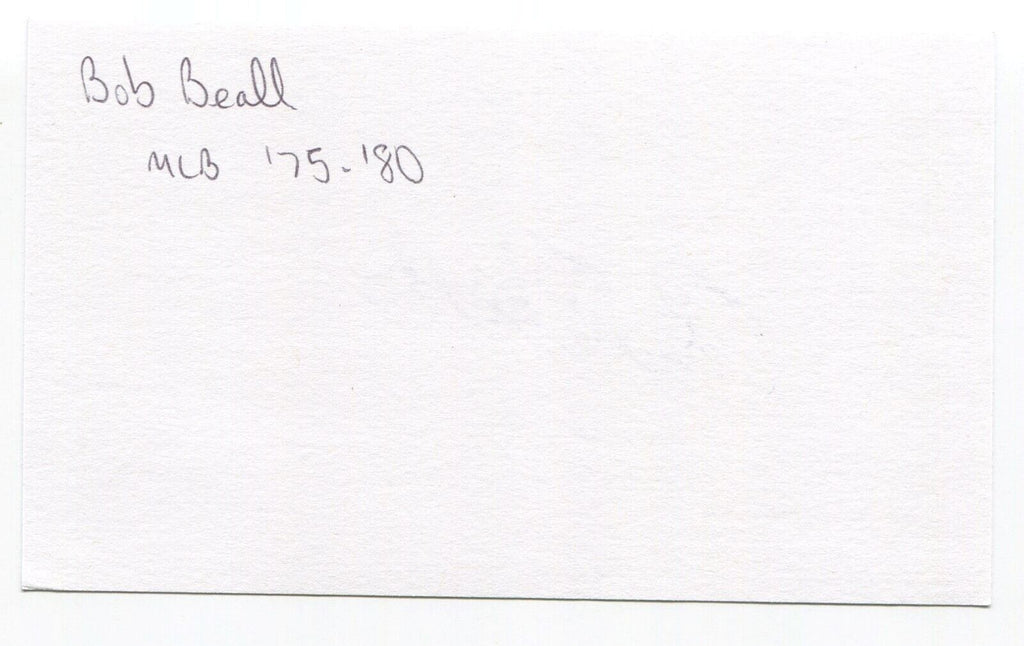 Bob Beall
MLB '75-'80